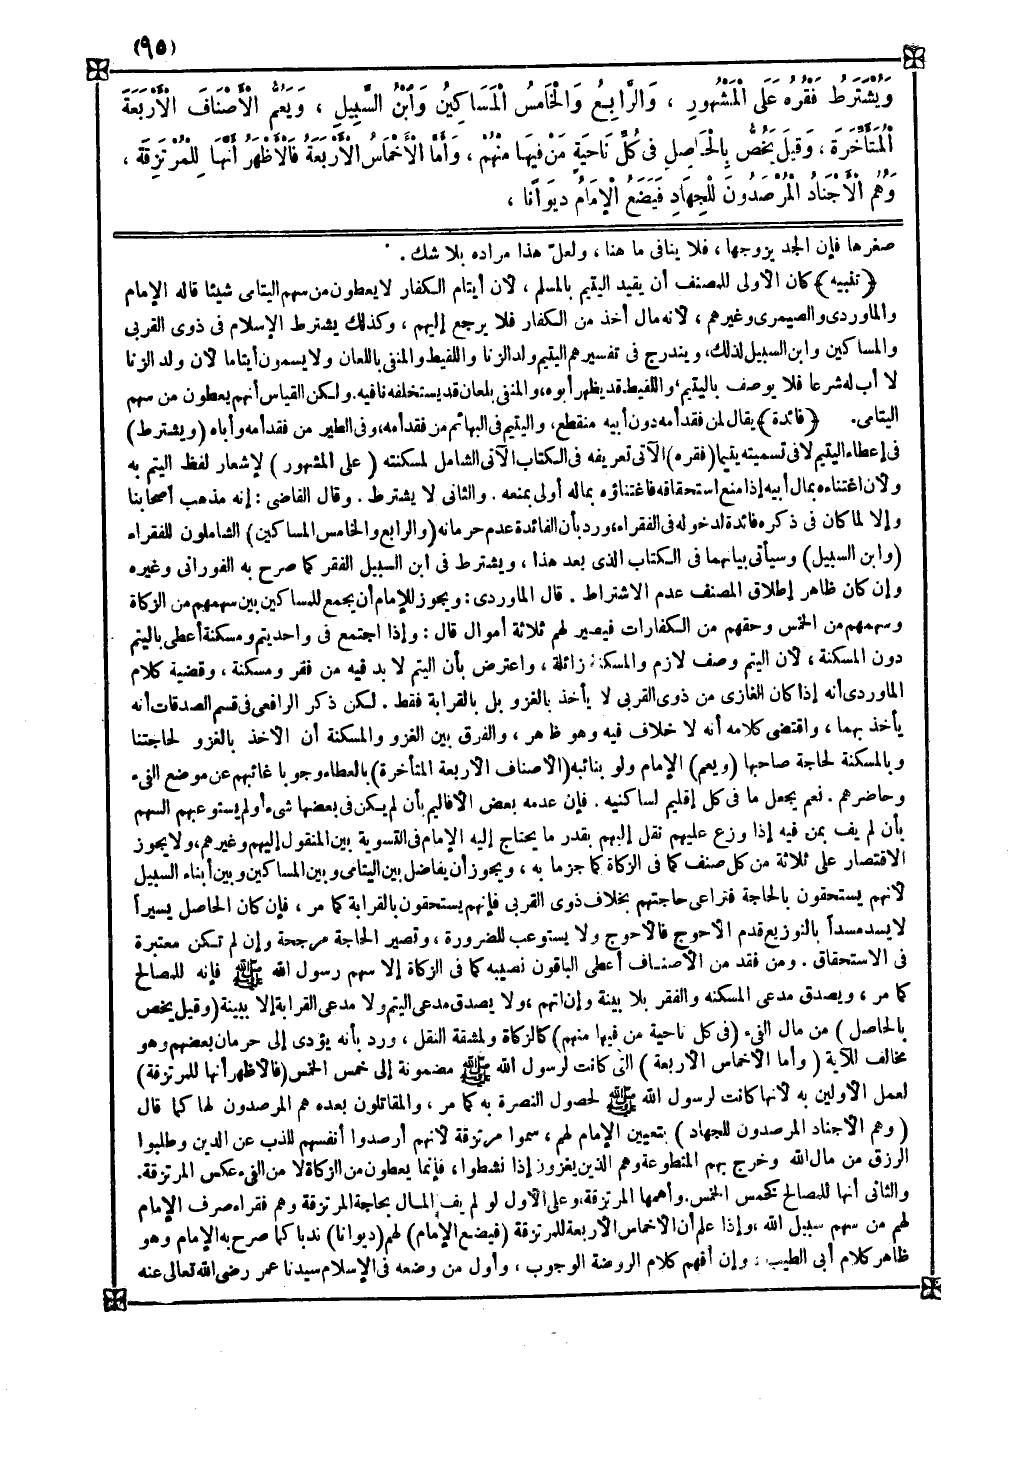 (٩٥)
وَيُشْتَرَطُ فَقْرُهُ عَلَى الْمَشْهُورِ ، وَالرَّابِعُ وَالْخَامِسُ الْمَسَاكِينُ وَابْنُ السَّبِيلِ ، وَيَعُمُّ الْأَصْنَافَ الْأَرْبَعَةَ
الْمُتَأَخِّرَةَ ، وَقِيلَ يَخُصُّ بِالْحَاصِلِ فِى كُلِّ نَاحِيَةٍ مَنْ فِيهَا مِنْهُمْ ، وَأَمَّا الْأَخْمَاسُ الْأَرْبَعَةُ فَالْأَظْهَرُ أَنَّهَا لِلْمُرْتَزِقَةِ ،
وَهُمُ الْأَجْنَادُ الْمُرْصَدُونَ لِلْجِهَادِ فَيَضَعُ الْإِمَامُ دِيوَانًا ،
صغرها فإن الجد يزوجها ، فلا ينافى ما هنا ، ولعلّ هذا مراده بلا شك .
﴿ تنبيه ﴾ كان الأولى للمصنف أن يقيد اليتيم بالمسلم ، لأن أيتام الكفار لا يعطون من سهم اليتامى شيئا قاله الإمام
والماوردى والصيمرى وغيرهم ، لأنه مال أخذ من الكفار فلا يرجع إليهم ، وكذلك يشترط الإسلام فى ذوى القربى
والمساكين وابن السبيل لذلك، ويندرج فى تفسيرهم اليتيم ولد الزنا واللقيط والمنفى باللعان ولا يسمون أيتاما لأن ولد الزنا
لا أب له شرعا فلا يوصف باليتيم، واللقيط قد يظهر أبوه، والمنفى بلعان قد يستخلفه نافيه. ولكن القياس أنهم يعطون من سهم
اليتامى. ﴿ فائدة ﴾ يقال لمن فقد أمه دون أبيه منقطع، واليتيم فى البهائم من فقد أمه، وفى الطير من فقد أمه وأباه (ويشترط)
فى إعطاء اليتيم لا فى تسميته يتيما (فقره) الآتى تعريفه فى الكتاب الآتى الشامل لمسكنته ( على المشهور ) لإشعار لفظ اليتم به
ولأن اغتناءه بمال أبيه إذا منع استحقاقه فاغتناؤه بماله أولى بمنعه . والثانى لا يشترط . وقال القاضى : إنه مذهب أصحابنا
وإلا لما كان فى ذكره فائدة لدخوله فى الفقراء، ورد بأن الفائدة عدم حرمانه (والرابع والخامس المساكين) الشاملون للفقراء
(وابن السبيل) وسيأتى بيانهما فى الكتاب الذى بعد هذا ، ويشترط فى ابن السبيل الفقر كما صرح به الفورانى وغيره
وإن كان ظاهر إطلاق المصنف عدم الاشتراط . قال الماوردى : ويجوز للإمام أن يجمع للمساكين بين سهمهم من الزكاة
وسهمهم من الخمس وحقهم من الكفارات فيصير لهم ثلاثة أموال قال : وإذا اجتمع فى واحد يتم ومسكنة أعطى باليتم
دون المسكنة ، لأن اليتم وصف لازم والمسكنة زائلة ، واعترض بأن اليتم لا بد فيه من فقر ومسكنة ، وقضية كلام
الماوردى أنه إذا كان الغازى من ذوى القربى لا يأخذ بالغزو بل بالقرابة فقط . لكن ذكر الرافعى فى قسم الصدقات أنه
يأخذ بهما ، واقتضى كلامه أنه لا خلاف فيه وهو ظاهر ، والفرق بين الغزو والمسكنة أن الأخذ بالغزو لحاجتنا
وبالمسكنة لحاجة صاحبها (ويعم) الإمام ولو بنائبه (الأصناف الأربعة المتأخرة) بالعطاء وجوبا غائبهم عن موضع الفىء
وحاضرهم . نعم يجعل ما فى كل إقليم لساكنيه . فإن عدمه بعض الأقاليم بأن لم يكن فى بعضها شىء أو لم يستوعبهم السهم
بأن لم يف بمن فيه إذا وزع عليهم نقل إليهم بقدر ما يحتاج إليه الإمام فى التسوية بين المنقول إليهم وغيرهم، ولا يجوز
الاقتصار على ثلاثة من كل صنف كما فى الزكاة كما جزما به ، ويجوز أن يفاضل بين اليتامى وبين المساكين وبين أبناء السبيل
لأنهم يستحقون بالحاجة فتراعى حاجتهم بخلاف ذوى القربى فإنهم يستحقون بالقرابة كما مر ، فإن كان الحاصل يسيراً
لا يسد مسداً بالتوزيع قدم الأحوج فالأحوج ولا يستوعب للضرورة ، وتصير الحاجة مرجحة وإن لم تكن معتبرة
فى الاستحقاق . ومن فقد من الأصناف أعطى الباقون نصيبه كما فى الزكاة إلا سهم رسول الله ﷺ فإنه للمصالح
كما مر ، ويصدق مدعى المسكنة والفقر بلا بينة وإن اتهم ، ولا يصدق مدعى اليتم ولا مدعى القرابة إلا ببينة (وقيل يخص
بالحاصل ) من مال الفىء (فى كل ناحية من فيها منهم) كالزكاة ولمشقة النقل ، ورد بأنه يؤدى إلى حرمان بعضهم وهو
مخالف للآية ( وأما الأخماس الأربعة ) التى كانت لرسول الله ﷺ مضمونة إلى خمس الخمس (فالأظهر أنها للمرتزقة)
لعمل الأولين به لأنها كانت لرسول الله ﷺ لحصول النصرة به كما مر ، والمقاتلون بعده هم المرصدون لها كما قال
( وهم الأجناد المرصدون للجهاد ) بتعيين الإمام لهم ، سموا مرتزقة لأنهم أرصدوا أنفسهم للذب عن الدين وطلبوا
الرزق من مال الله وخرج بهم المتطوعة وهم الذين يغزون إذا نشطوا، فإنما يعطون من الزكاة لا من الفىء عكس المرتزقة.
والثانى أنها للمصالح كخمس الخمس. وأهمها المرتزقة، وعلى الأول لو لم يف المال بحاجة المرتزقة وهم فقراء صرف الإمام
لهم من سهم سبيل الله ، وإذا علم أن الأخماس الأربعة للمرتزقة (فيضع الإمام) لهم (ديوانا) ندبا كما صرح به الإمام وهو
ظاهر كلام أبى الطيب ، وإن أفهم كلام الروضة الوجوب ، وأول من وضعه فى الإسلام سيدنا عمر رضى الله تعالى عنه